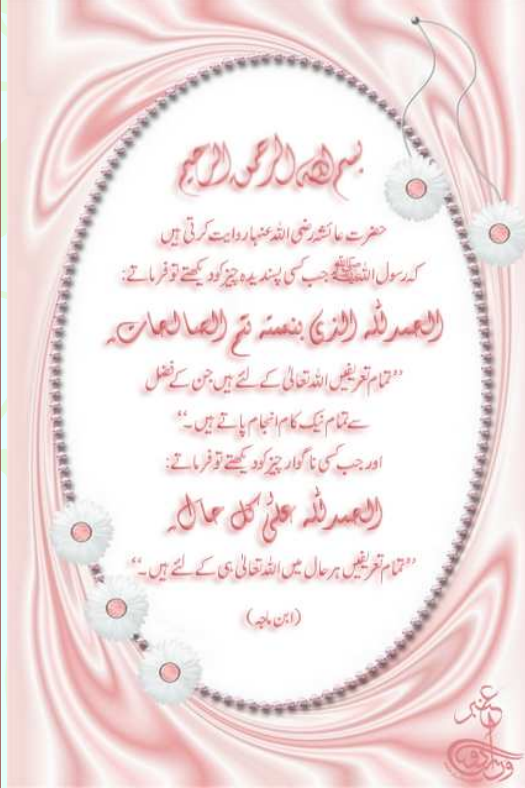 بسم الله الرحمن الرحيم
حضرت عائشہ رضی اللہ عنہا روایت کرتی ہیں
کہ رسول اللہ ﷺ جب کسی پسندیدہ چیز کو دیکھتے تو فرماتے:
الحمدلله الذی بنعمته تتم الصالحات۔
’’تمام تعریفیں اللہ تعالیٰ کے لئے ہیں جن کے فضل
سے تمام نیک کام انجام پاتے ہیں۔‘‘
اور جب کسی ناگوار چیز کو دیکھتے تو فرماتے:
الحمدلله علیٰ كل حال۔
’’تمام تعریفیں ہر حال میں اللہ تعالیٰ ہی کے لئے ہیں۔‘‘
(ابن ماجہ)
عنبر